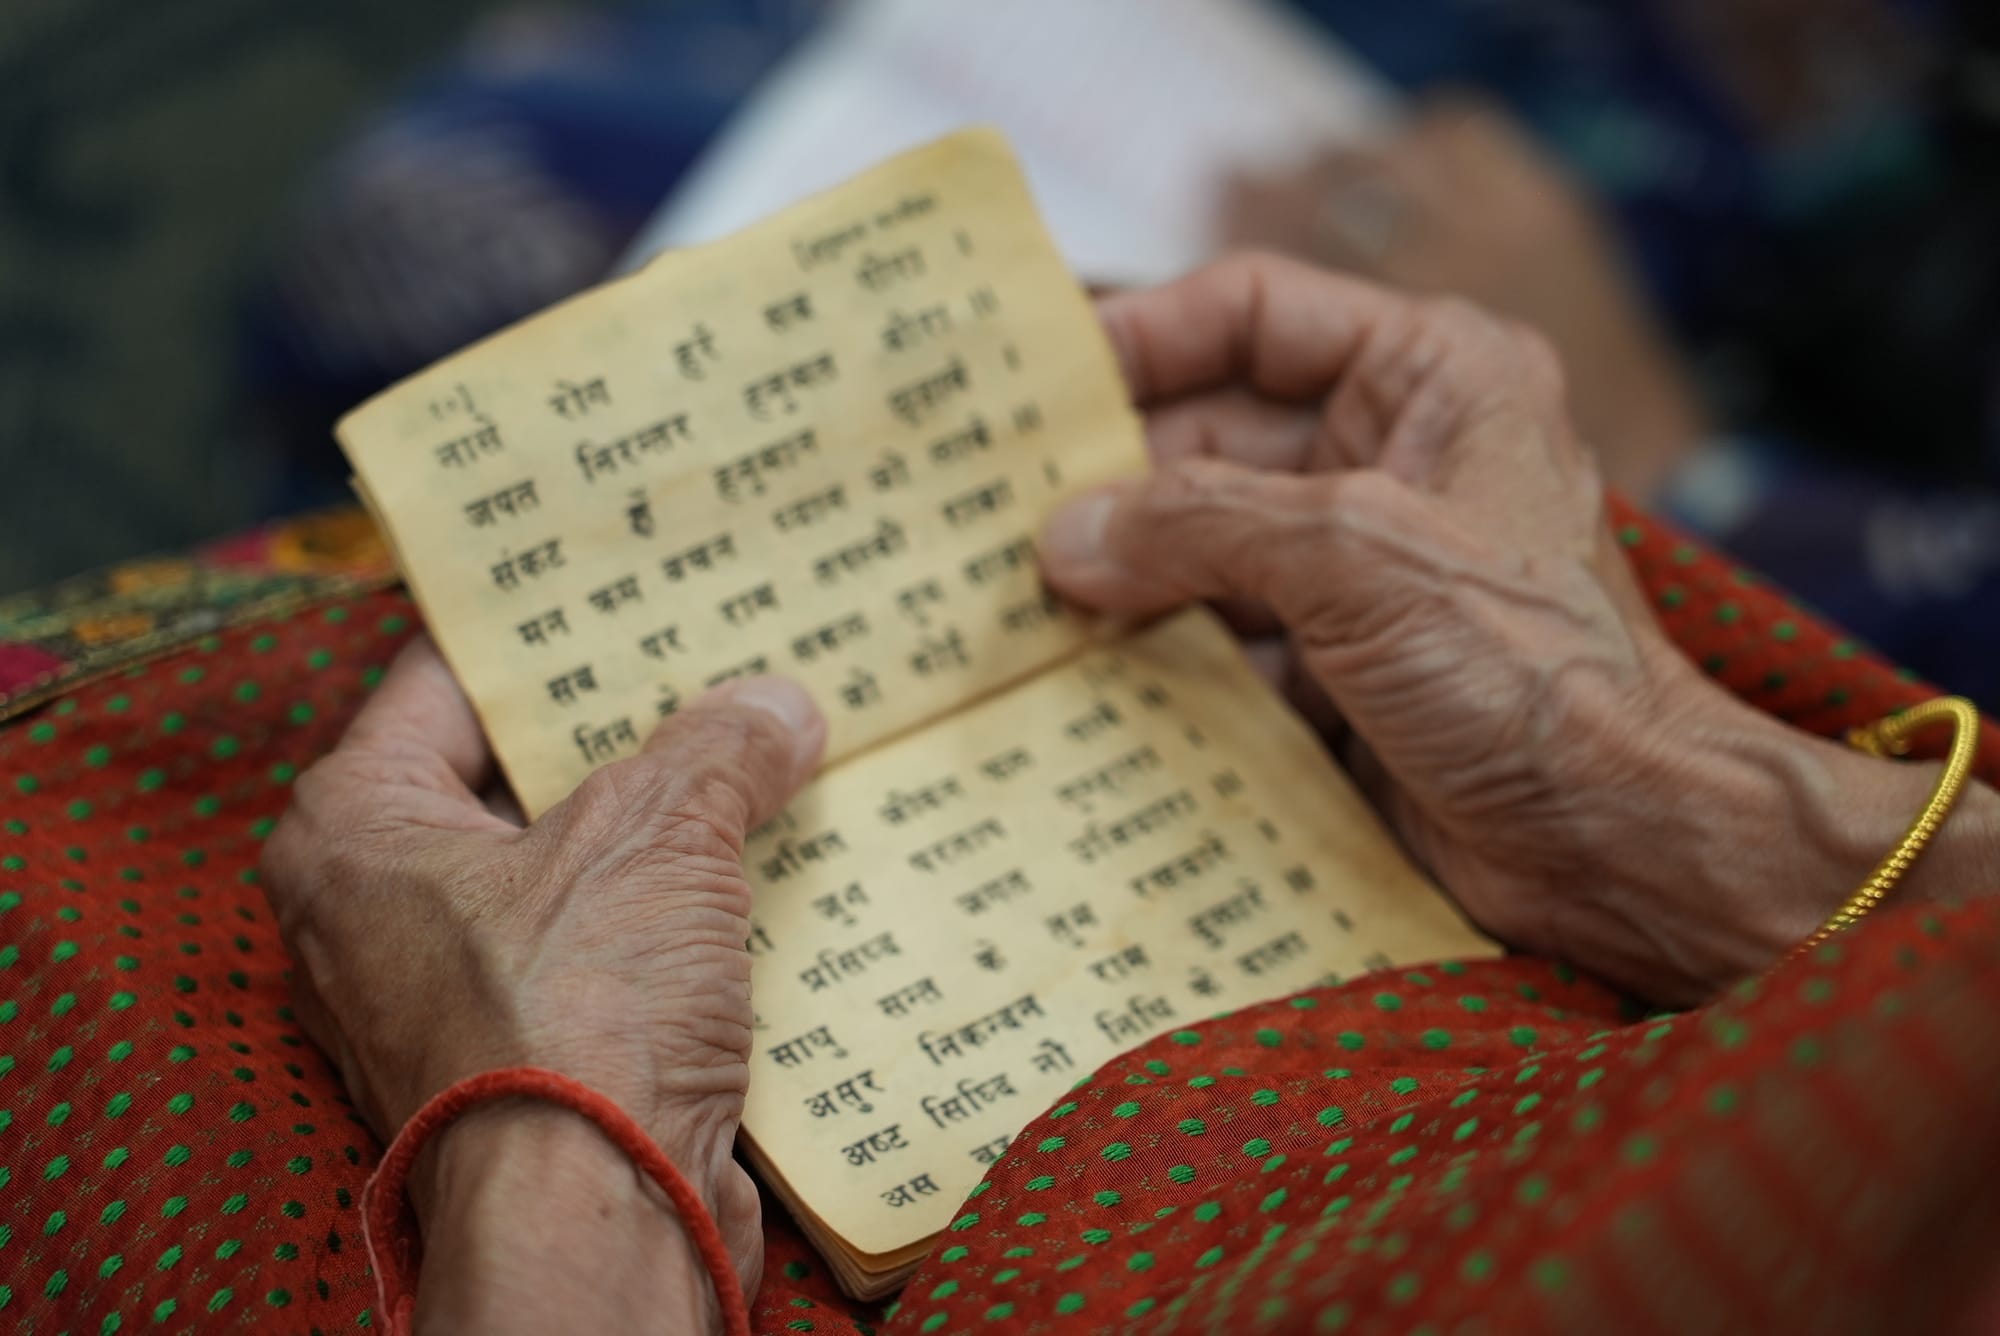 १०]
[हनुमान चालीसा
नासे रोग हरे सब पीरा ।
जपत निरन्तर हनुमत बीरा ॥
संकट से हनुमान छुड़ावे ।
मन क्रम बचन ध्यान जो लावे ॥
सब पर राम तपस्वी राजा ।
तिन के सकल तुम साजा
जो कोई लावे
अमित जीवन फल पावे ॥
जुग परताप तुम्हारा ।
प्रसिध्द जगत उजियारा ॥
साधु सन्त के तुम रखवारे ।
असुर निकन्दन राम दुलारे ॥
अष्ट सिध्दि नौ निधि के दाता ।
अस बर